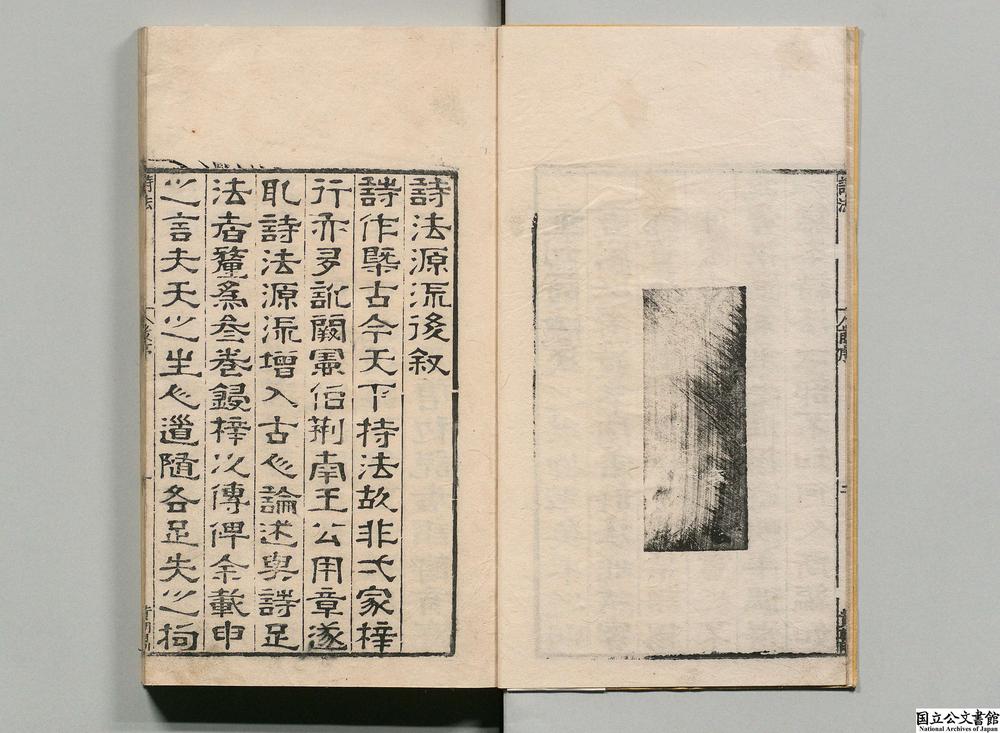 詩法源流後叙
詩作槩古今天下持法故非弌家梓
行亦多訛闕憲伯荆南王公用章遂
取詩法源流增入古人論述與詩足
法者釐爲叁卷鋟梓以傳俾余載申
之言夫天之生人道隨各足失之拘
詩法
国立公文書館
National Archives of Japan